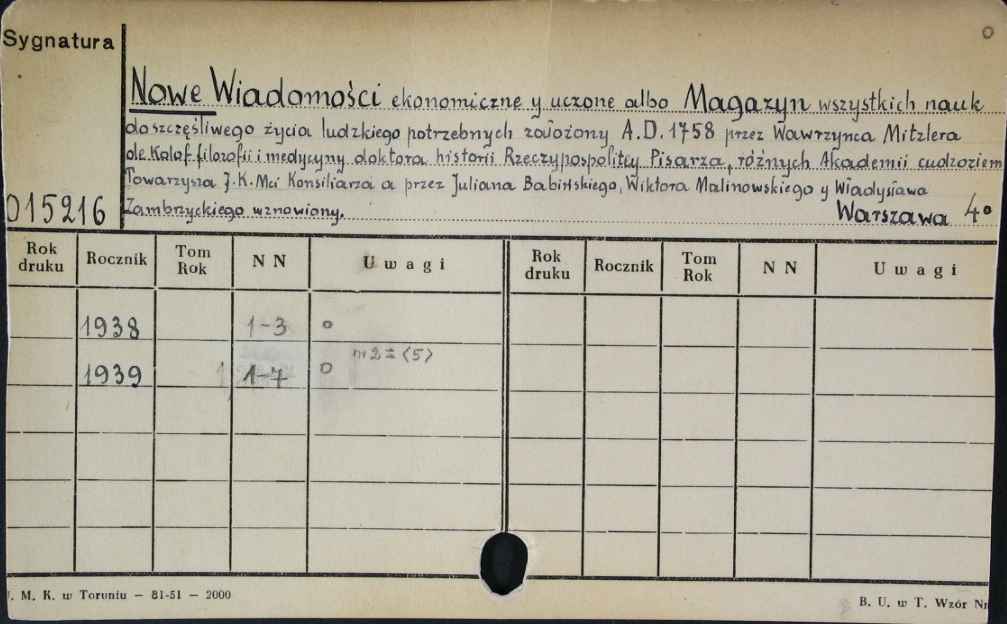 Sygnatura
Nowe Wiadomości ekonomiczne y uczone albo Magazyn wszystkich nauk
do szczęśliwego życia ludzkiego potrzebnych założony A.D. 1758 przez Wawrzyńca Mitzlera
de Kolof filozofii i medycyny doktora historii Rzeczypospolitey Pisarza, różnych Akademii cudzoziem
Towarzysza J.K. Mci Konsiliarza a przez Juliana Babińskiego, Wiktora Malinowskiego y Władysława
015216 Zambrzyckiego wznowiony. Warszawa 4°
Rok druku Rocznik Tom Rok N N Uwagi Rok druku Rocznik Tom Rok N N Uwagi
1938 1-3 o
nr 2 = (5)
1939 1 1-7 o
. M. K. w Toruniu — 81-51 — 2000
B. U. w T. Wzór Nr